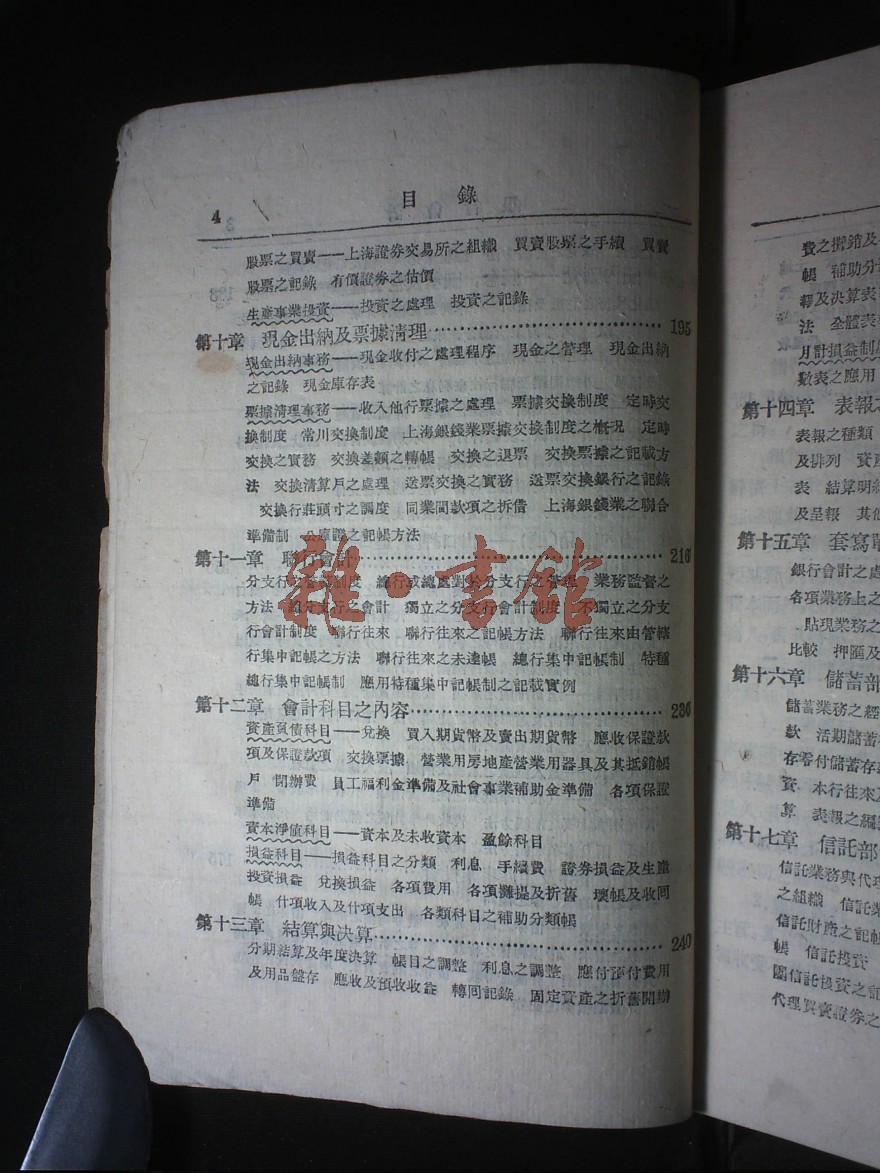 4
目錄
股票之買賣——上海證券交易所之組織 買賣股票之手續 買賣
股票之記錄 有價證券之估價
生產事業投資——投資之處理 投資之記錄
第十章 現金出納及票據清理 195
現金出納事務——現金收付之處理程序 現金之管理 現金出納
之記錄 現金庫存表
票據清理事務——收入他行票據之處理 票據交換制度 定時交
換制度 常川交換制度 上海銀錢業票據交換制度之概況 定時
交換之實務 交換差額之轉帳 交換之退票 交換票據之記載方
法 交換清算戶之處理 送票交換之實務 送票交換銀行之記錄
交換行莊頭寸之調度 同業間款項之折借 上海銀錢業之聯合
準備制 公庫證之記帳方法
第十一章 聯行會計 216
分支行之管轄制度 總行或總處對於分支行之管理 業務監督之
方法 總分支行之會計 獨立之分支行會計制度 不獨立之分支
行會計制度 聯行往來 聯行往來之記帳方法 聯行往來由管轄
行集中記帳之方法 聯行往來之未達帳 總行集中記帳制 特種
總行集中記帳制 應用特種集中記帳制之記載實例
第十二章 會計科目之內容 230
資產負債科目——兌換 買入期貨幣及賣出期貨幣 應收保證款
項及保證款項 交換票據 營業用房地產營業用器具及其抵銷帳
戶 開辦費 員工福利金準備及社會事業補助金準備 各項保證
準備
資本淨值科目——資本及未收資本 盈餘科目
損益科目——損益科目之分類 利息 手續費 證券損益及生產
投資損益 兌換損益 各項費用 各項攤提及折舊 壞帳及收回
帳 什項收入及什項支出 各類科目之補助分類帳
第十三章 結算與決算 240
分期結算及年度決算 帳目之調整 利息之調整 應付預付費用
及用品盤存 應收及預收收益 轉回記錄 固定資產之折舊開辦
雜·書館
費之攤銷及
帳 補助分
釋及決算表
法 全體表
月計損益制
數表之應用
第十四章 表報
表報之種類
及排列 資產
表 結算明細
及呈報 其他
第十五章 套寫
銀行會計之
各項業務上之
貼現業務之
比較 押匯及
第十六章 儲蓄部
儲蓄業務之
款 活期儲蓄
存零付儲蓄存
資 本行往來及
算 表報之編
第十七章 信託部
信託業務與代理
之組織 信託業
信託財產之記帳
帳 信託投資
團信託投資之記
代理買賣證券之